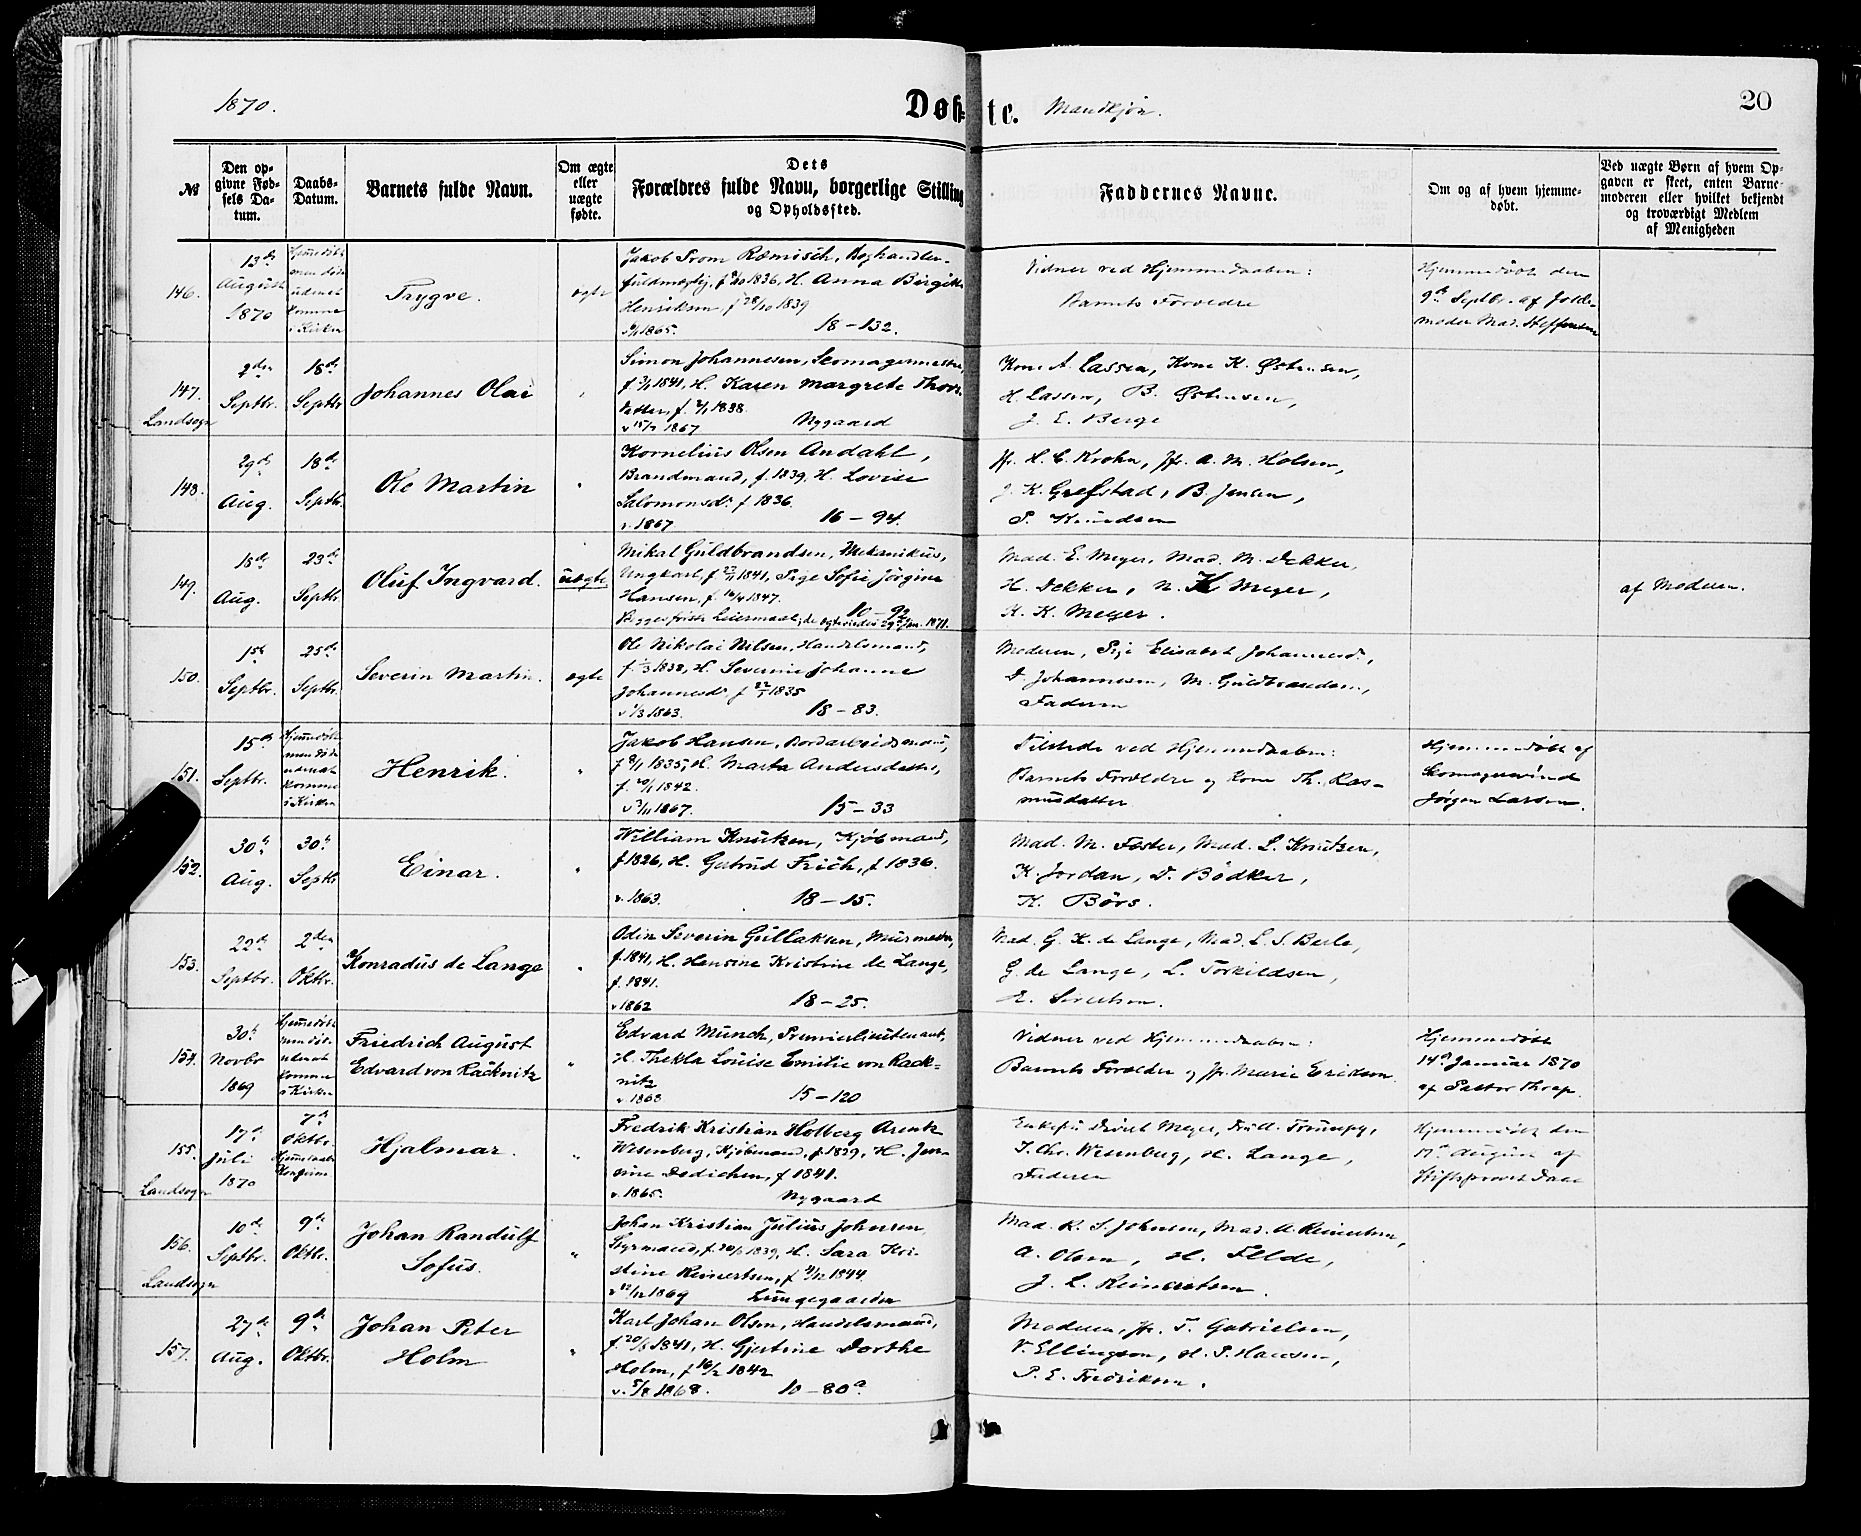 1870.
Døbte.
Mandkjøn.
20
№
Den opgivne Fødsels Datum.
Daabs-Datum.
Barnets fulde Navn.
Om ægte eller uægte fødte.
Dets Forældres fulde Navn, borgerlige Stilling og Opholdssted.
Faddernes Navne.
Om og af hvem hjemmedøbt.
Ved uægte Børn af hvem Opgaven er skeet, enten Barnemoderen eller hvilket bekjendt og troværdigt Medlem af Menigheden
146.
13de August 1870
Hjemmedøbt men døde udenat komme i Kirken
Trygve.
ægte
Jakob From Ræmisch, Boghandler-
fuldmægtig, f. 1836, H. Anna Birgitte
Henriksen f 28/10 1839
1865. 18-132.
Vidner ved Hjemmedaaben:
Barnets Forældre
Hjemmedøbt den
9de Septbr. af Jorde-
moder Mad. Steffensen
147.
Landsogn
2den Septbr.
18de Septbr
Johannes Olai
Simon Johannesen, Skomagermester,
f. 1841, H. Karen Margrete Thors-
datter, f. 1838.
1867 Nygaard
Kone A. Lassen, Kone K. Østensen,
H. Lassen, B. Østensen,
J. E. Berge
148.
29de Aug.
18de Septbr.
Ole Martin
Kornelius Olsen Andahl,
Brandmand, f. 1839, H. Lovise
Salomonsdr. f 1836.
v. 1867 16-94.
Jfr. H. C. Krohn, Jfr. A. M. Holsen,
J. K. Grefstad, B. Jensen,
P. Knudsen
149.
18de Aug.
23de Septbr.
Oluf Ingvard.
uægte
Mikal Guldbrandsen, Mekanikus,
Ungkarl, f 23/11 1841, Pige Sofie Jørgine
Hansen, f. 16/4 1847. 10-92
Begges første Leiermaal; de ægteviedes 29de Jan. 1871.
Mad. E. Meyer, Mad. M. Dekker,
H. Dekker, N. K Meyer,
K. K. Meyer.
af Moderen.
150.
1ste Septbr.
25de Septbr.
Severin Martin.
ægte
Ole Nikolai Nilsen, Handelsmand,
f. 1/3 1838, H. Severine Johanne
Johannesdr. f 22/1 1835
v 1/3 1863. 18-83.
Moderen, Pige Elisabet Johannesdr.,
D. Johannesen, M. Guldbrandsen,
Faderen
151.
15de Septbr.
Hjemmedøbt men døde udenat komme i Kirken
Henrik.
Jakob Hansen, Bordarbeidsmand,
f 8/1 1835, H. Marta Andersdatter,
f. 1842.
v 3/11 1867. 15-33
Tilstede ved Hjemmedaaben:
Barnets Forældre og Kone Th. Ras-
musdatter
Hjemmedøbt af
Skomagersvend
Jørgen Larsen.
152.
30te Aug.
30te Septbr
Einar.
William Knutzen, Kjøbmand,
f 1826, H. Gertrud Frich, f 1836.
v. 1863. 18-15.
Mad. M. Faster, Mad. L. Knutzen,
K. Jordan, D. Bødker,
K. Børs.
153.
22de Septbr.
2den Oktbr.
Konradus de Lange
Odin Severin Gullaksen, Murmester,
f. 1841, H. Hensine Kristine de Lange,
f. 1841.
v 1862 18-25.
Mad. G. K. de Lange, Mad. L. S. Berle,
G. de Lange, L. Torkildsen,
E. Sivertsen.
154.
30te Novbr 1869
Hjemmedøbt men døde udenat komme i Kirken
Friedrich August
Edvard von Racknitz
Edvard Munch, Premierlieutenant,
H. Thekla Louise Emilie von Rack-
nitz
v. 1868 15-120
Vidner ved Hjemmedaaben:
Barnets Forældre og Jfr. Marie Erikson.
Hjemmedøbt
14de Januar 1870
af Pastor Thrap.
155.
Landsogn
17de Juli 1870
7de Oktbr.
Hjalmar.
Fredrik Kristian Holberg Arentz
Wesenberg, Kjøbmand, f 1829, H. Jen-
sine Dedichen, f 1841.
v. 1865. Nygaard
Enkefru Meyer, Trumpy,
J. Chr. Wesenberg, H. Lange,
Faderen
Hjemmedøbt den
17de August af
Stiftsprovst Daae
156.
Landsogn
10de Septbr.
9de Oktbr.
Johan Randulf
Sofus.
Johan Kristian Julius Johnsen
Styrmand, f. 1839, H. Sara Kri-
stine Reinertsen, f 1844.
1869 Lungegaarden
Mad. K. S. Johnsen, Mad. A. Reinertsen,
A. Olsen, H. Felde,
J. L. Reinertsen.
157.
27de Aug.
9de Oktbr.
Johan Peter
Holm
Karl Johan Olsen, Handelsmand,
f. 1841, H. Gjertine Dorthe
Holm, f 16/2 1842
v. 5/8 1868. 10-80a
Moderen, Jfr. T. Gabrielsen,
V. Ellingsen, H. P. Hansen,
P. E. Fredriksen.